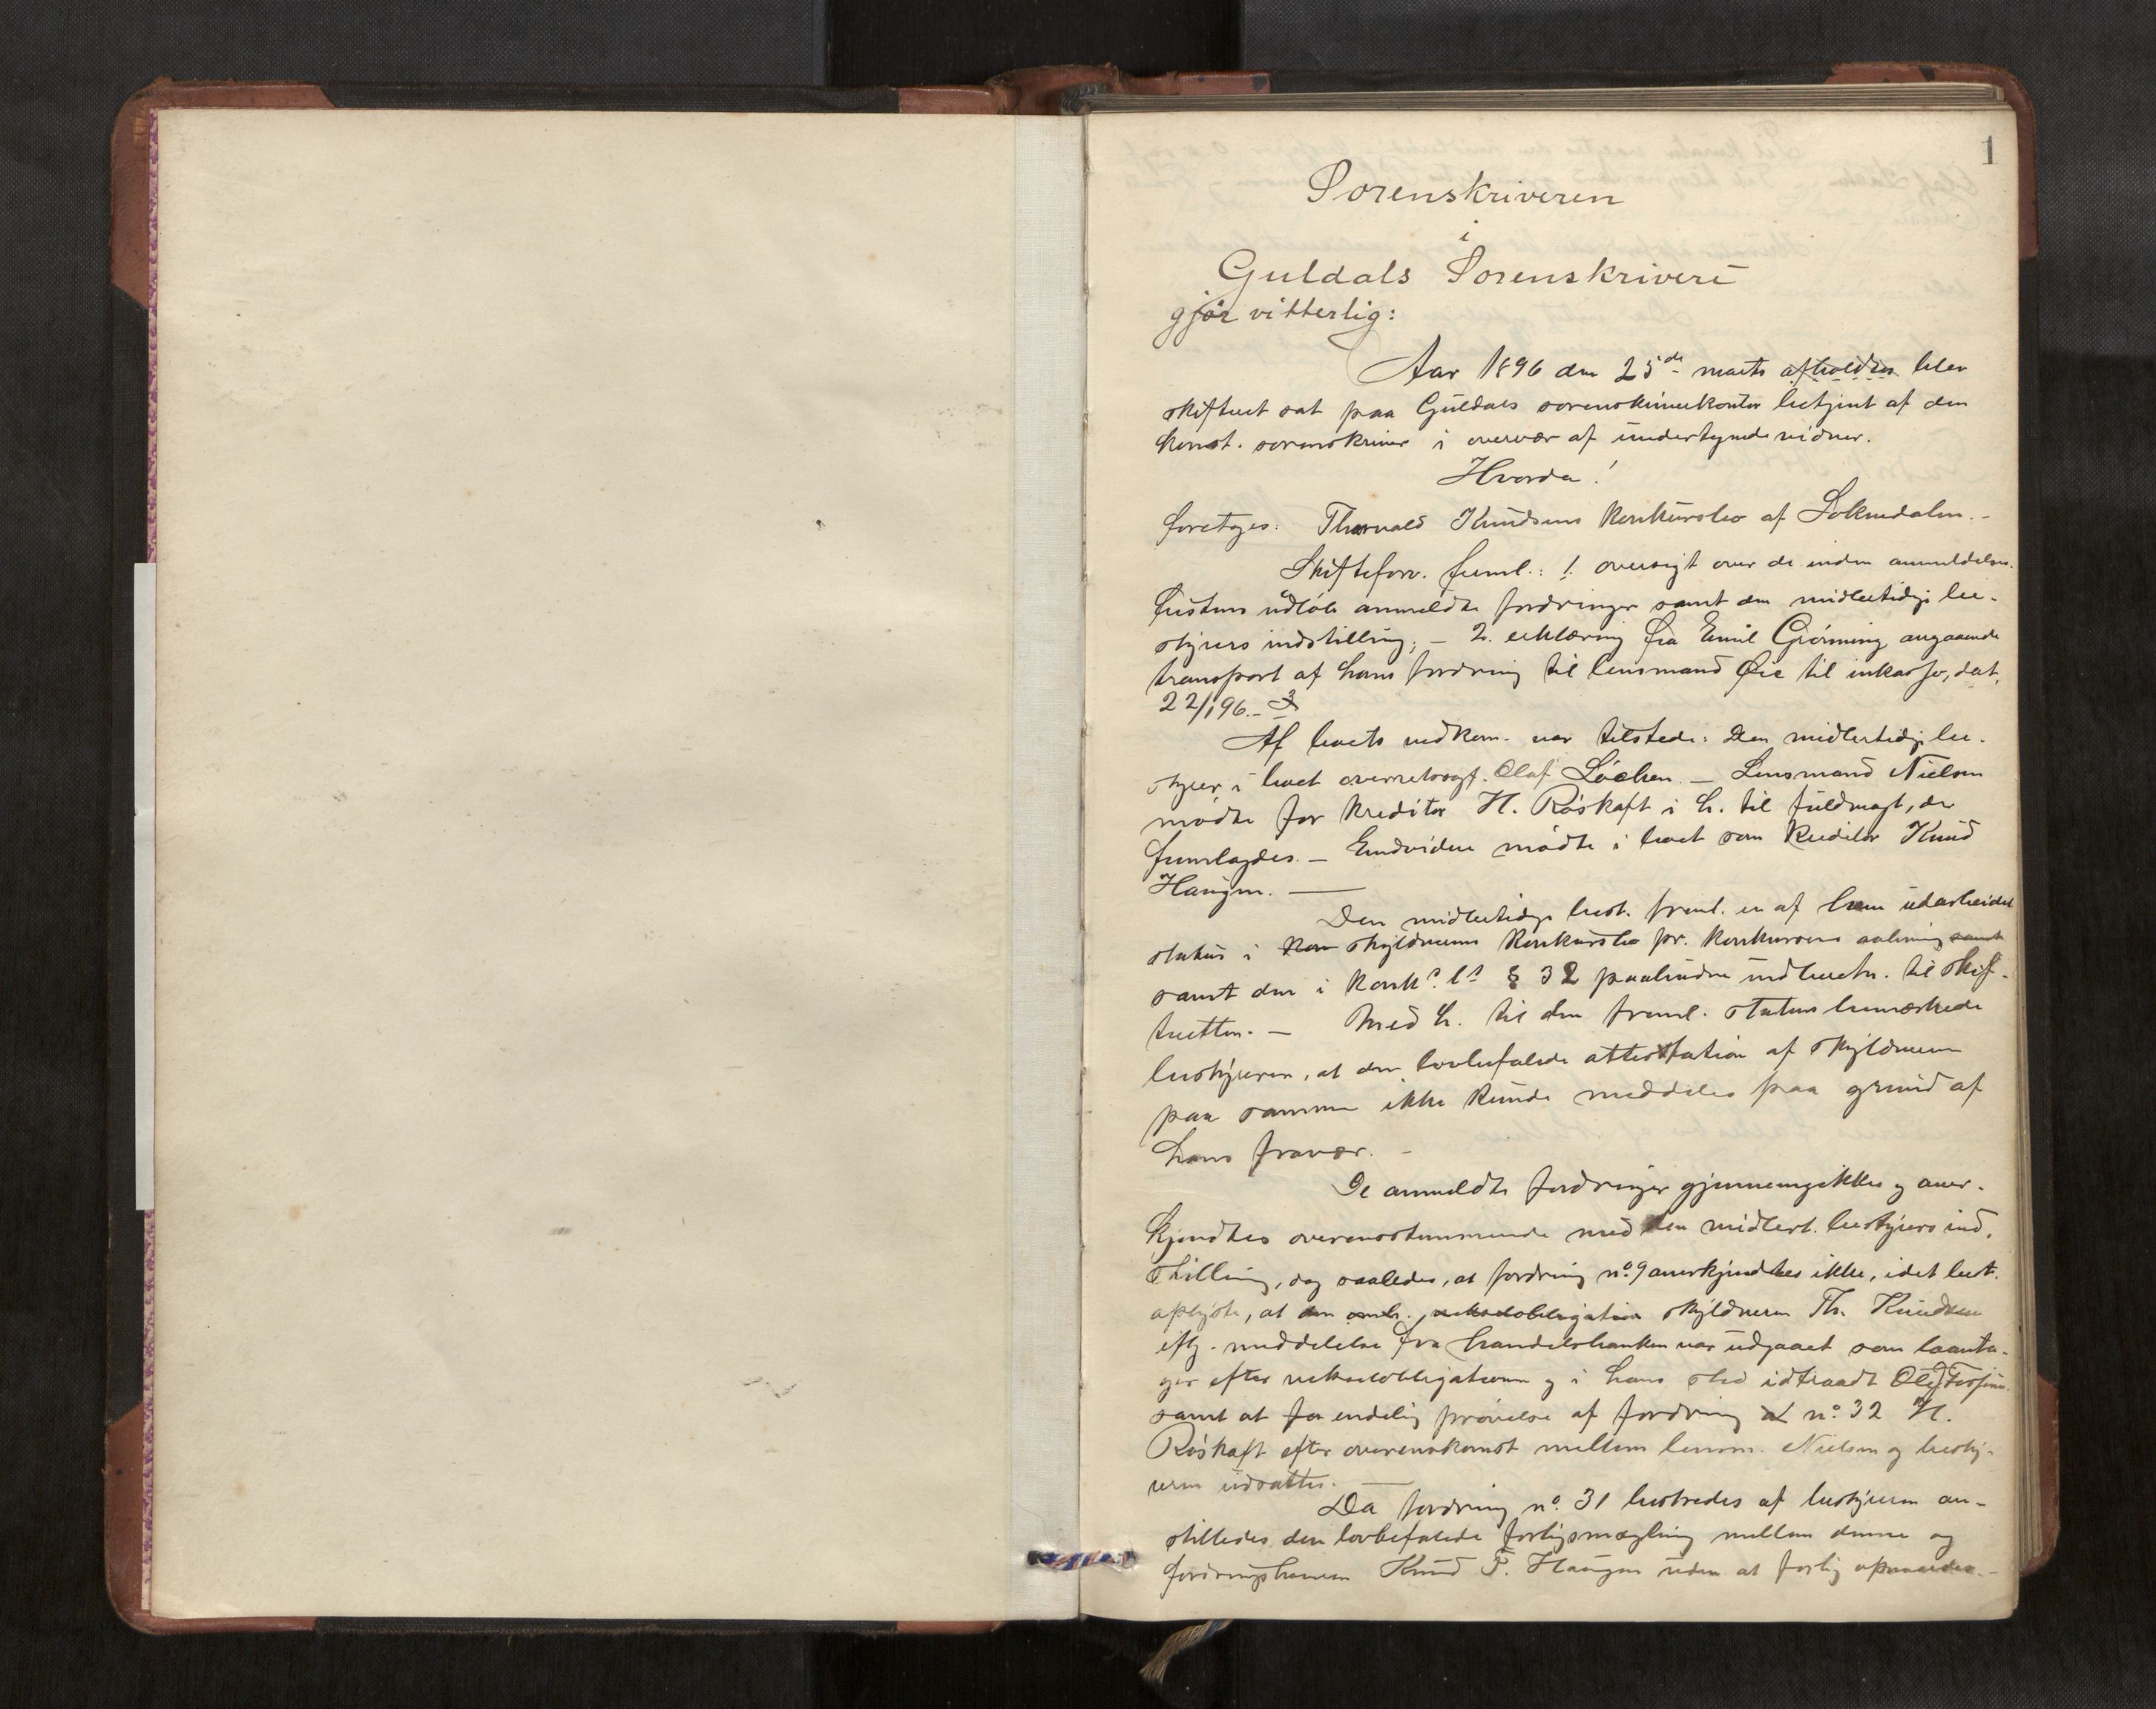 1
Sorenskriveren
i
Guldals Sorenskriveri
gjör vitterlig:
Aar 1896 den 25de marts afholdtes blev
skifteret sat paa Guldals sorenskriverkontor betjent af den
konst. sorenskriver i overvær af undertegnede vidner.
Hvorda!
foretoges: Thorvald Knudsens konkursbo af Soknedalen.-
Skifteforv. freml.: 1. oversigt over de inden anmeldelses-
fristens udløb anmeldte fordringer samt den midlertidige be-
styrers indstilling; - 2. erklæring fra Emil Grönning angaaende
transport af hans fordring til lensmand Øie til inkasso, dat.
22/1 96.- 3
Af boets vedkom. var tilstede: Den midlertidige be-
styrer i boet overretssagf. Olaf Löchen. - Lensmand Nielsen
mödte for kreditor H. Röskaft i h. til fuldmagt, der
fremlagdes. - Endvidere mödte i boet som kreditor Knud
Haugen. -
Den midlertidige best. freml. en af ham udarbeidet
status i kon skyldnerens konkursbo pr. konkursens aabning samt
samt den i konks. ls § 32 paabudne indberetn. til skif-
teretten. - Med h. til den freml. status bemærkede
bestyreren, at den lovbefalede attestation af skyldneren
paa samme ikke kunde meddeles paa grund af
hans fravær. -
De anmeldte fordringer gjennemgikkes og aner-
kjendtes overensstemmende med den midlert. bestyrers ind-
stilling, dog saaledes, at fordring no. 9 anerkjendtes ikke, idet best.
oplyste, at den omh. vekselobligation skyldneren Th. Knudsen
eftr. meddelelse fra handelsbanken var udgaaet som laanta-
ger efter vekselobligationen og i hans sted idtraadt
samt at for endelig prövelse af fordring no. 32 H.
Röskaft efter overenskomst mellem lensm. Nielsen og besty-
reren udsattes. -
Da fordring no. 31 bestredes af bestyreren an-
stilledes den lovbefalede forligsmægling mellem denne og
fordringshaveren Knud T. Haugen uden at forlig opnaaedes. -